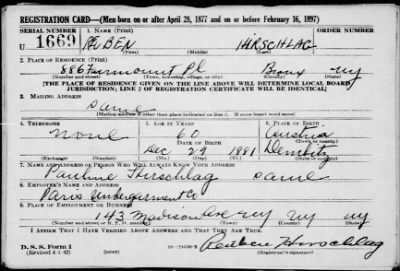 REGISTRATION CARD—(Men born on or after April 28, 1877 and on or before February 16, 1897)
SERIAL NUMBER 1. NAME (Print) ORDER NUMBER
U 1669 REUBEN HIRSCHLAG
(First) (Middle) (Last)
2. PLACE OF RESIDENCE (Print)
886 Fairmount Pl Bronx NY
(Number and street) (Town, township, village, or city) (County) (State)
[THE PLACE OF RESIDENCE GIVEN ON THE LINE ABOVE WILL DETERMINE LOCAL BOARD
JURISDICTION; LINE 2 OF REGISTRATION CERTIFICATE WILL BE IDENTICAL]
3. MAILING ADDRESS
same
[Mailing address if other than place indicated on line 2. If same insert word same]
4. TELEPHONE 5. AGE IN YEARS 6. PLACE OF BIRTH
none 60 Austria
DATE OF BIRTH (Town or county)
Dec 29 1881 Dembitz
(Exchange) (Number) (Mo.) (Day) (Yr.) (State or country)
7. NAME AND ADDRESS OF PERSON WHO WILL ALWAYS KNOW YOUR ADDRESS
Pauline Hirschlag same
8. EMPLOYER'S NAME AND ADDRESS
Paris Undergarment Co
9. PLACE OF EMPLOYMENT OR BUSINESS
143 Madison Ave NY NY NY
(Number and street or R. F. D. number) (Town) (County) (State)
I AFFIRM THAT I HAVE VERIFIED ABOVE ANSWERS AND THAT THEY ARE TRUE.
D. S. S. Form 1
(Revised 4-1-42)
Reuben Hirschlag
(Registrant's signature)